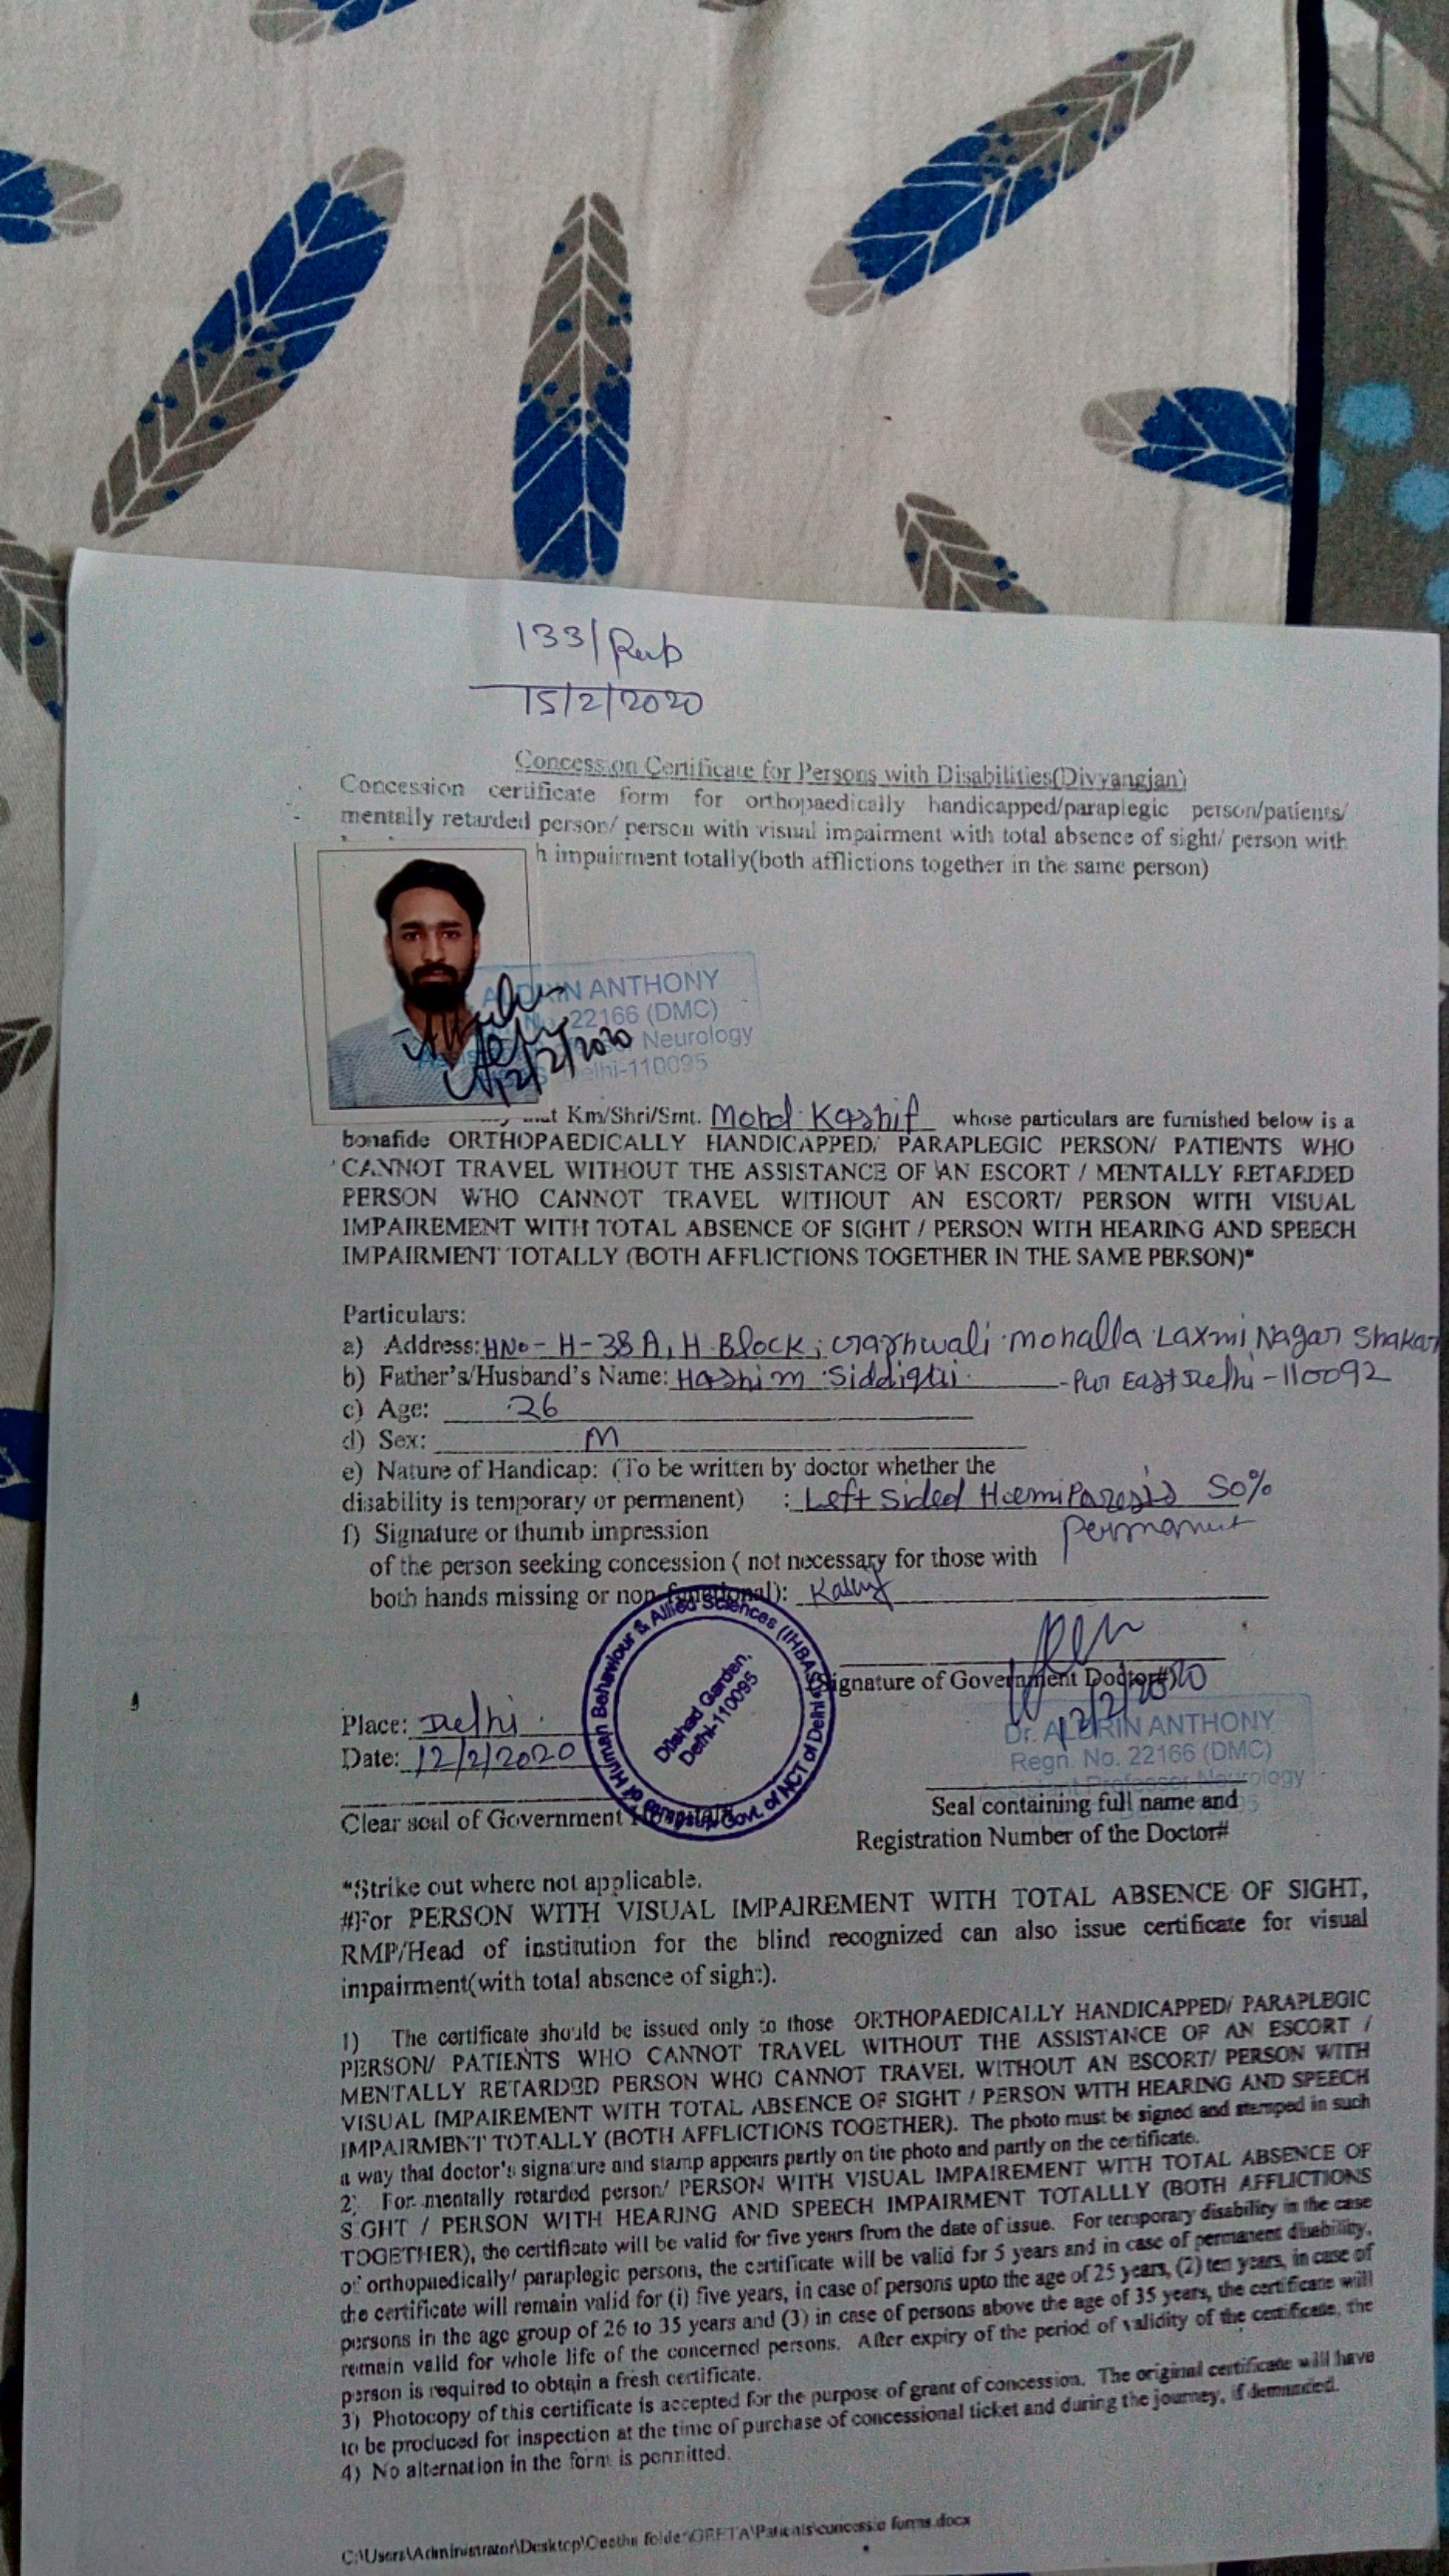 133/Reb
15/2/2020
Concession Certificate for Persons with Disabilities(Divyangjan)
Concession certificate form for orthopaedically handicapped/paraplegic person/patients/
mentally retarded person/ person with visual impairment with total absence of sight/ person with
h impairment totally(both afflictions together in the same person)
ANTHONY
22166 (DMC)
Neurology
elhi-110095
12/2/2020
Km/Shri/Smt. Mohd Kashif whose particulars are furnished below is a
bonafide ORTHOPAEDICALLY HANDICAPPED/ PARAPLEGIC PERSON/ PATIENTS WHO
CANNOT TRAVEL WITHOUT THE ASSISTANCE OF AN ESCORT / MENTALLY RETARDED
PERSON WHO CANNOT TRAVEL WITHOUT AN ESCORT/ PERSON WITH VISUAL
IMPAIREMENT WITH TOTAL ABSENCE OF SIGHT / PERSON WITH HEARING AND SPEECH
IMPAIRMENT TOTALLY (BOTH AFFLICTIONS TOGETHER IN THE SAME PERSON)*
Particulars:
a) Address: HNo - H-38A, H Block, Garhwali Mohalla Laxmi Nagar Shakar
b) Father's/Husband's Name: Hashim Siddiqui - Pur East Delhi - 110092
c) Age: 26
d) Sex: M
e) Nature of Handicap: (To be written by doctor whether the
disability is temporary or permanent) : Left Sided Haemiparesis 50%
Permanent
f) Signature or thumb impression
of the person seeking concession ( not necessary for those with
both hands missing or non-functional): Kashif
Institute of Human Behaviour & Allied Sciences (IHBAS)
Govt. of NCT of Delhi
Dilshad Garden,
Delhi-110095
(Signature of Government Doctor#)
12/2/2020
Place: Delhi
Date: 12/2/2020
Dr. ALDRIN ANTHONY
Regn. No. 22166 (DMC)
Assistant Professor Neurology
Clear seal of Government Hospital#
Seal containing full name and
Registration Number of the Doctor#
*Strike out where not applicable.
#For PERSON WITH VISUAL IMPAIREMENT WITH TOTAL ABSENCE OF SIGHT,
RMP/Head of institution for the blind recognized can also issue certificate for visual
impairment(with total absence of sight).
1) The certificate should be issued only to those ORTHOPAEDICALLY HANDICAPPED/ PARAPLEGIC
PERSON/ PATIENTS WHO CANNOT TRAVEL WITHOUT THE ASSISTANCE OF AN ESCORT /
MENTALLY RETARDED PERSON WHO CANNOT TRAVEL WITHOUT AN ESCORT/ PERSON WITH
VISUAL IMPAIREMENT WITH TOTAL ABSENCE OF SIGHT / PERSON WITH HEARING AND SPEECH
IMPAIRMENT TOTALLY (BOTH AFFLICTIONS TOGETHER). The photo must be signed and stamped in such
a way that doctor's signature and stamp appears partly on the photo and partly on the certificate.
2) For mentally retarded person/ PERSON WITH VISUAL IMPAIREMENT WITH TOTAL ABSENCE OF
SIGHT / PERSON WITH HEARING AND SPEECH IMPAIREMENT TOTALLLY (BOTH AFFLICTIONS
TOGETHER), the certificate will be valid for five years from the date of issue. For temporary disability in the case
of orthopaedically/ paraplegic persons, the certificate will be valid for 5 years and in case of permanent disability,
the certificate will remain valid for (i) five years, in case of persons upto the age of 25 years, (2) ten years, in case of
persons in the age group of 26 to 35 years and (3) in case of persons above the age of 35 years, the certificate will
remain valid for whole life of the concerned persons. After expiry of the period of validity of the certificate, the
person is required to obtain a fresh certificate.
3) Photocopy of this certificate is accepted for the purpose of grant of concession. The original certificate will have
to be produced for inspection at the time of purchase of concessional ticket and during the journey, if demanded.
4) No alternation in the form is permitted.
C:\Users\Administrator\Desktop\Geetha folder\GEETA\Patients\concessio forms.docx